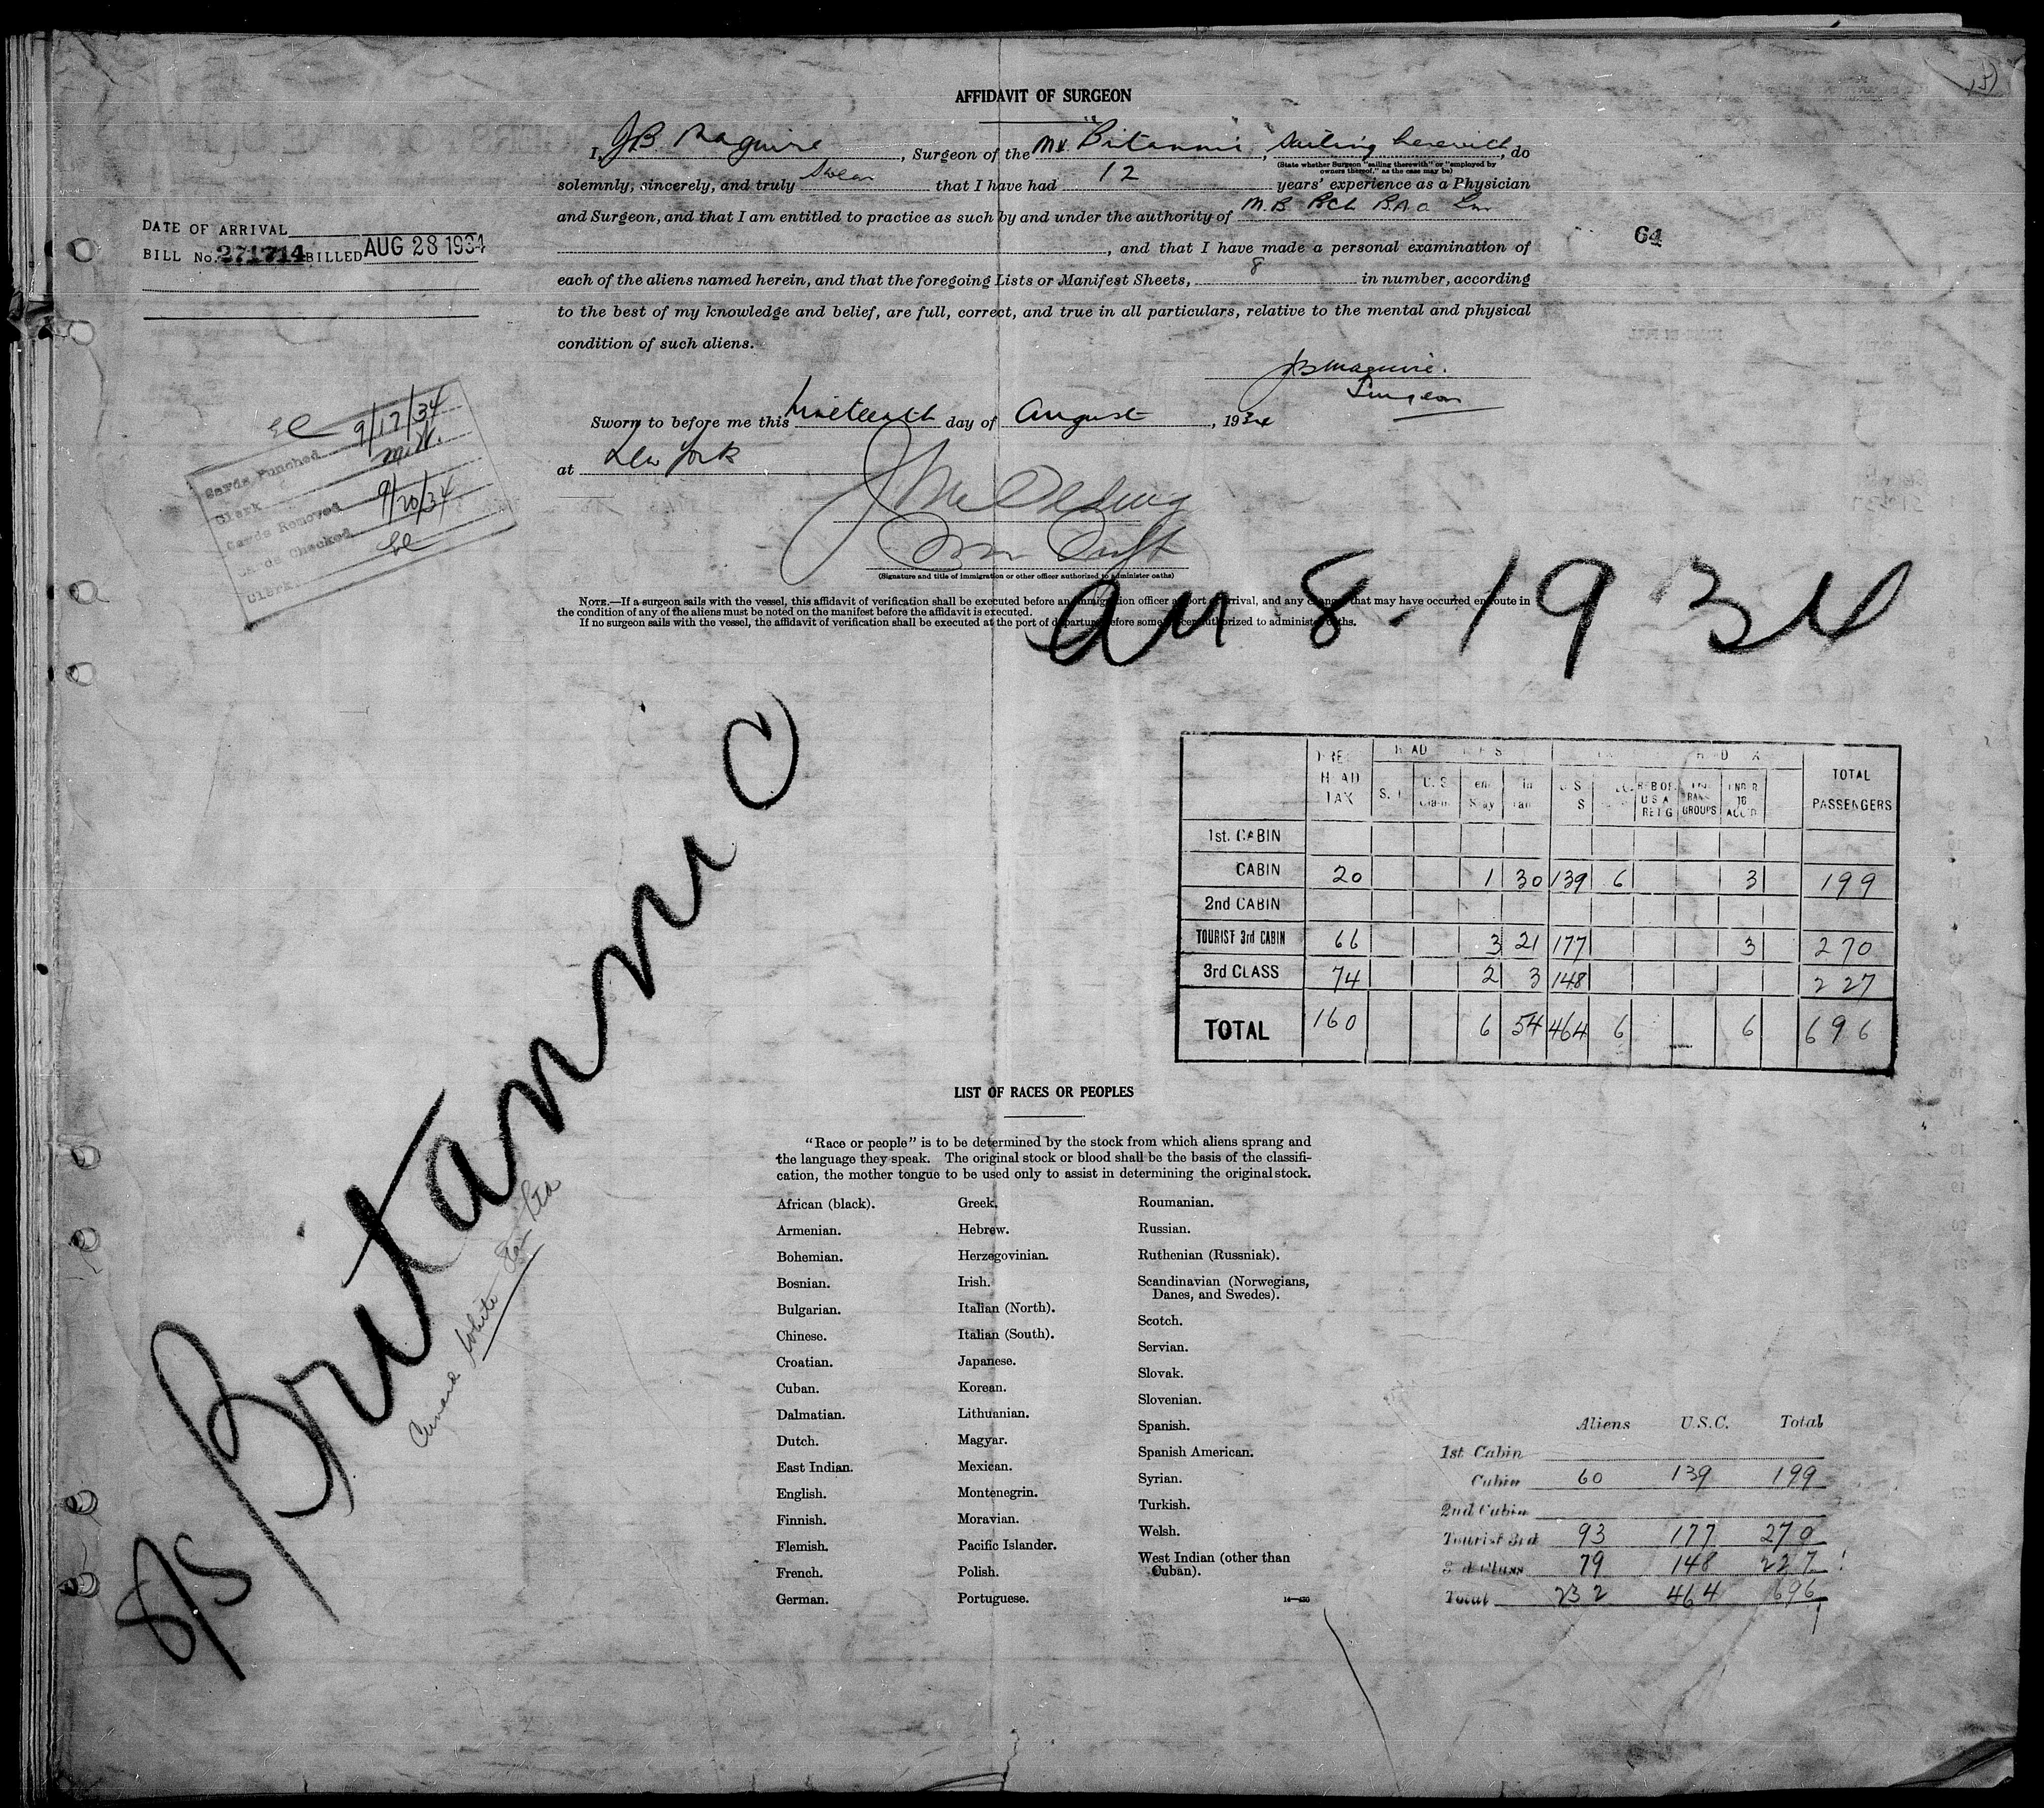 AFFIDAVIT OF SURGEON
I, J.B. Maguire, Surgeon of the M.V. "Britannic", sailing herewith, do
(State whether Surgeon "sailing therewith" or "employed by
owners thereof," as the case may be)
solemnly, sincerely, and truly swear that I have had 12 years' experience as a Physician
and Surgeon, and that I am entitled to practice as such by and under the authority of M.B. BCh B.A.O.
, and that I have made a personal examination of
each of the aliens named herein, and that the foregoing Lists or Manifest Sheets, 8 in number, according
to the best of my knowledge and belief, are full, correct, and true in all particulars, relative to the mental and physical
condition of such aliens.
JB Maguire.
Surgeon
Sworn to before me this nineteenth day of August, 1934
at New York
(Signature and title of immigration or other officer authorized to administer oaths)
NOTE.—If a surgeon sails with the vessel, this affidavit of verification shall be executed before an immigration officer at port of arrival, and any changes that may have occurred en route in
the condition of any of the aliens must be noted on the manifest before the affidavit is executed.
If no surgeon sails with the vessel, the affidavit of verification shall be executed at the port of departure before some officer authorized to administer oaths.
DATE OF ARRIVAL
BILL No. 271714 BILLED AUG 28 1934
64
Cards Punched 9/17/34
Clerk M.W.
Cards Removed 9/20/34
Cards Checked
Clerk
8-1934
S/S Britannic
Cunard White Star Ltd
HEAD TAX
TOTAL PASSENGERS
REB OF. U S A RET'G
GROUPS
1st. CABIN
CABIN 20 1 30 139 6 3 199
2nd CABIN
TOURIST 3rd CABIN 66 3 21 177 3 270
3rd CLASS 74 2 3 148 227
TOTAL 160 6 54 464 6 — 6 696
LIST OF RACES OR PEOPLES
"Race or people" is to be determined by the stock from which aliens sprang and
the language they speak. The original stock or blood shall be the basis of the classifi-
cation, the mother tongue to be used only to assist in determining the original stock.
African (black).
Armenian.
Bohemian.
Bosnian.
Bulgarian.
Chinese.
Croatian.
Cuban.
Dalmatian.
Dutch.
East Indian.
English.
Finnish.
Flemish.
French.
German.
Greek.
Hebrew.
Herzegovinian.
Irish.
Italian (North).
Italian (South).
Japanese.
Korean.
Lithuanian.
Magyar.
Mexican.
Montenegrin.
Moravian.
Pacific Islander.
Polish.
Portuguese.
Roumanian.
Russian.
Ruthenian (Russniak).
Scandinavian (Norwegians,
Danes, and Swedes).
Scotch.
Servian.
Slovak.
Slovenian.
Spanish.
Spanish American.
Syrian.
Turkish.
Welsh.
West Indian (other than
Cuban).
14—430
Aliens U.S.C. Total
1st Cabin
Cabin 60 139 199
2nd Cabin
Tourist 3rd 93 177 270
3rd Class 79 148 227
Total 232 464 696